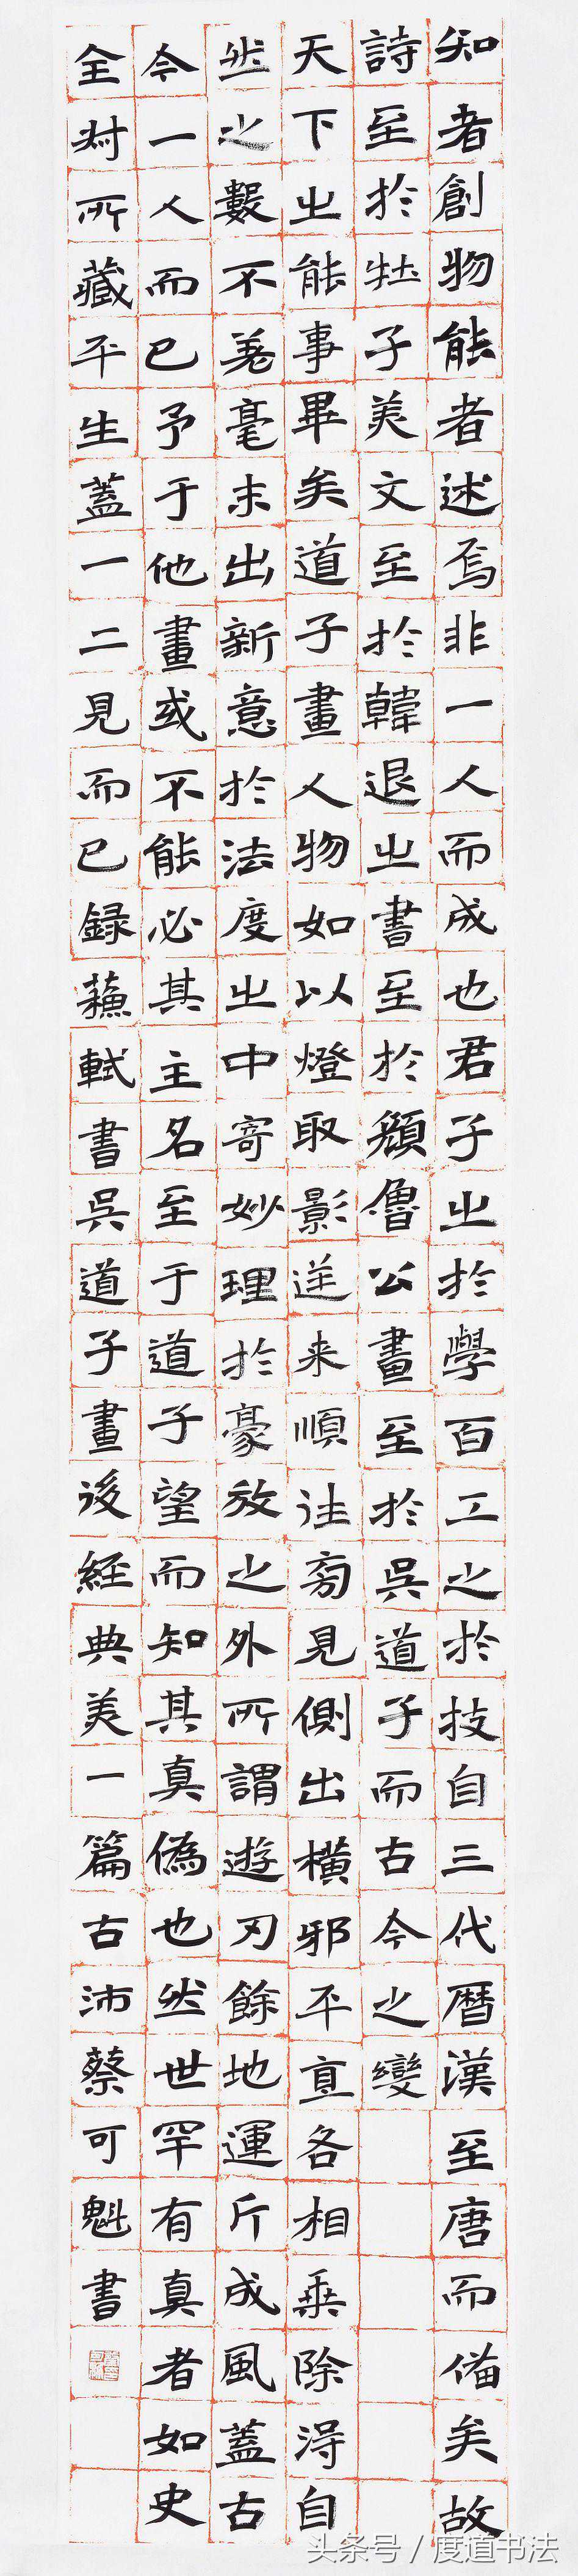 知者創物能者述焉非一人而成也君子之於學百工之於技自三代曆漢至唐而備矣故
詩至於杜子美文至於韓退之書至於顏魯公畫至於吳道子而古今之變
天下之能事畢矣道子畫人物如以燈取影逆来順往旁見側出橫邪平直各相乘除得自
然之數不差毫末出新意於法度之中寄妙理於豪放之外所謂遊刃餘地運斤成風蓋古
今一人而已予于他畫或不能必其主名至于道子望而知其真偽也然世罕有真者如史
全叔所藏平生蓋一二見而已錄蘇軾書吳道子畫後經典美一篇古沛蔡可魁書
头条号 / 度道书法